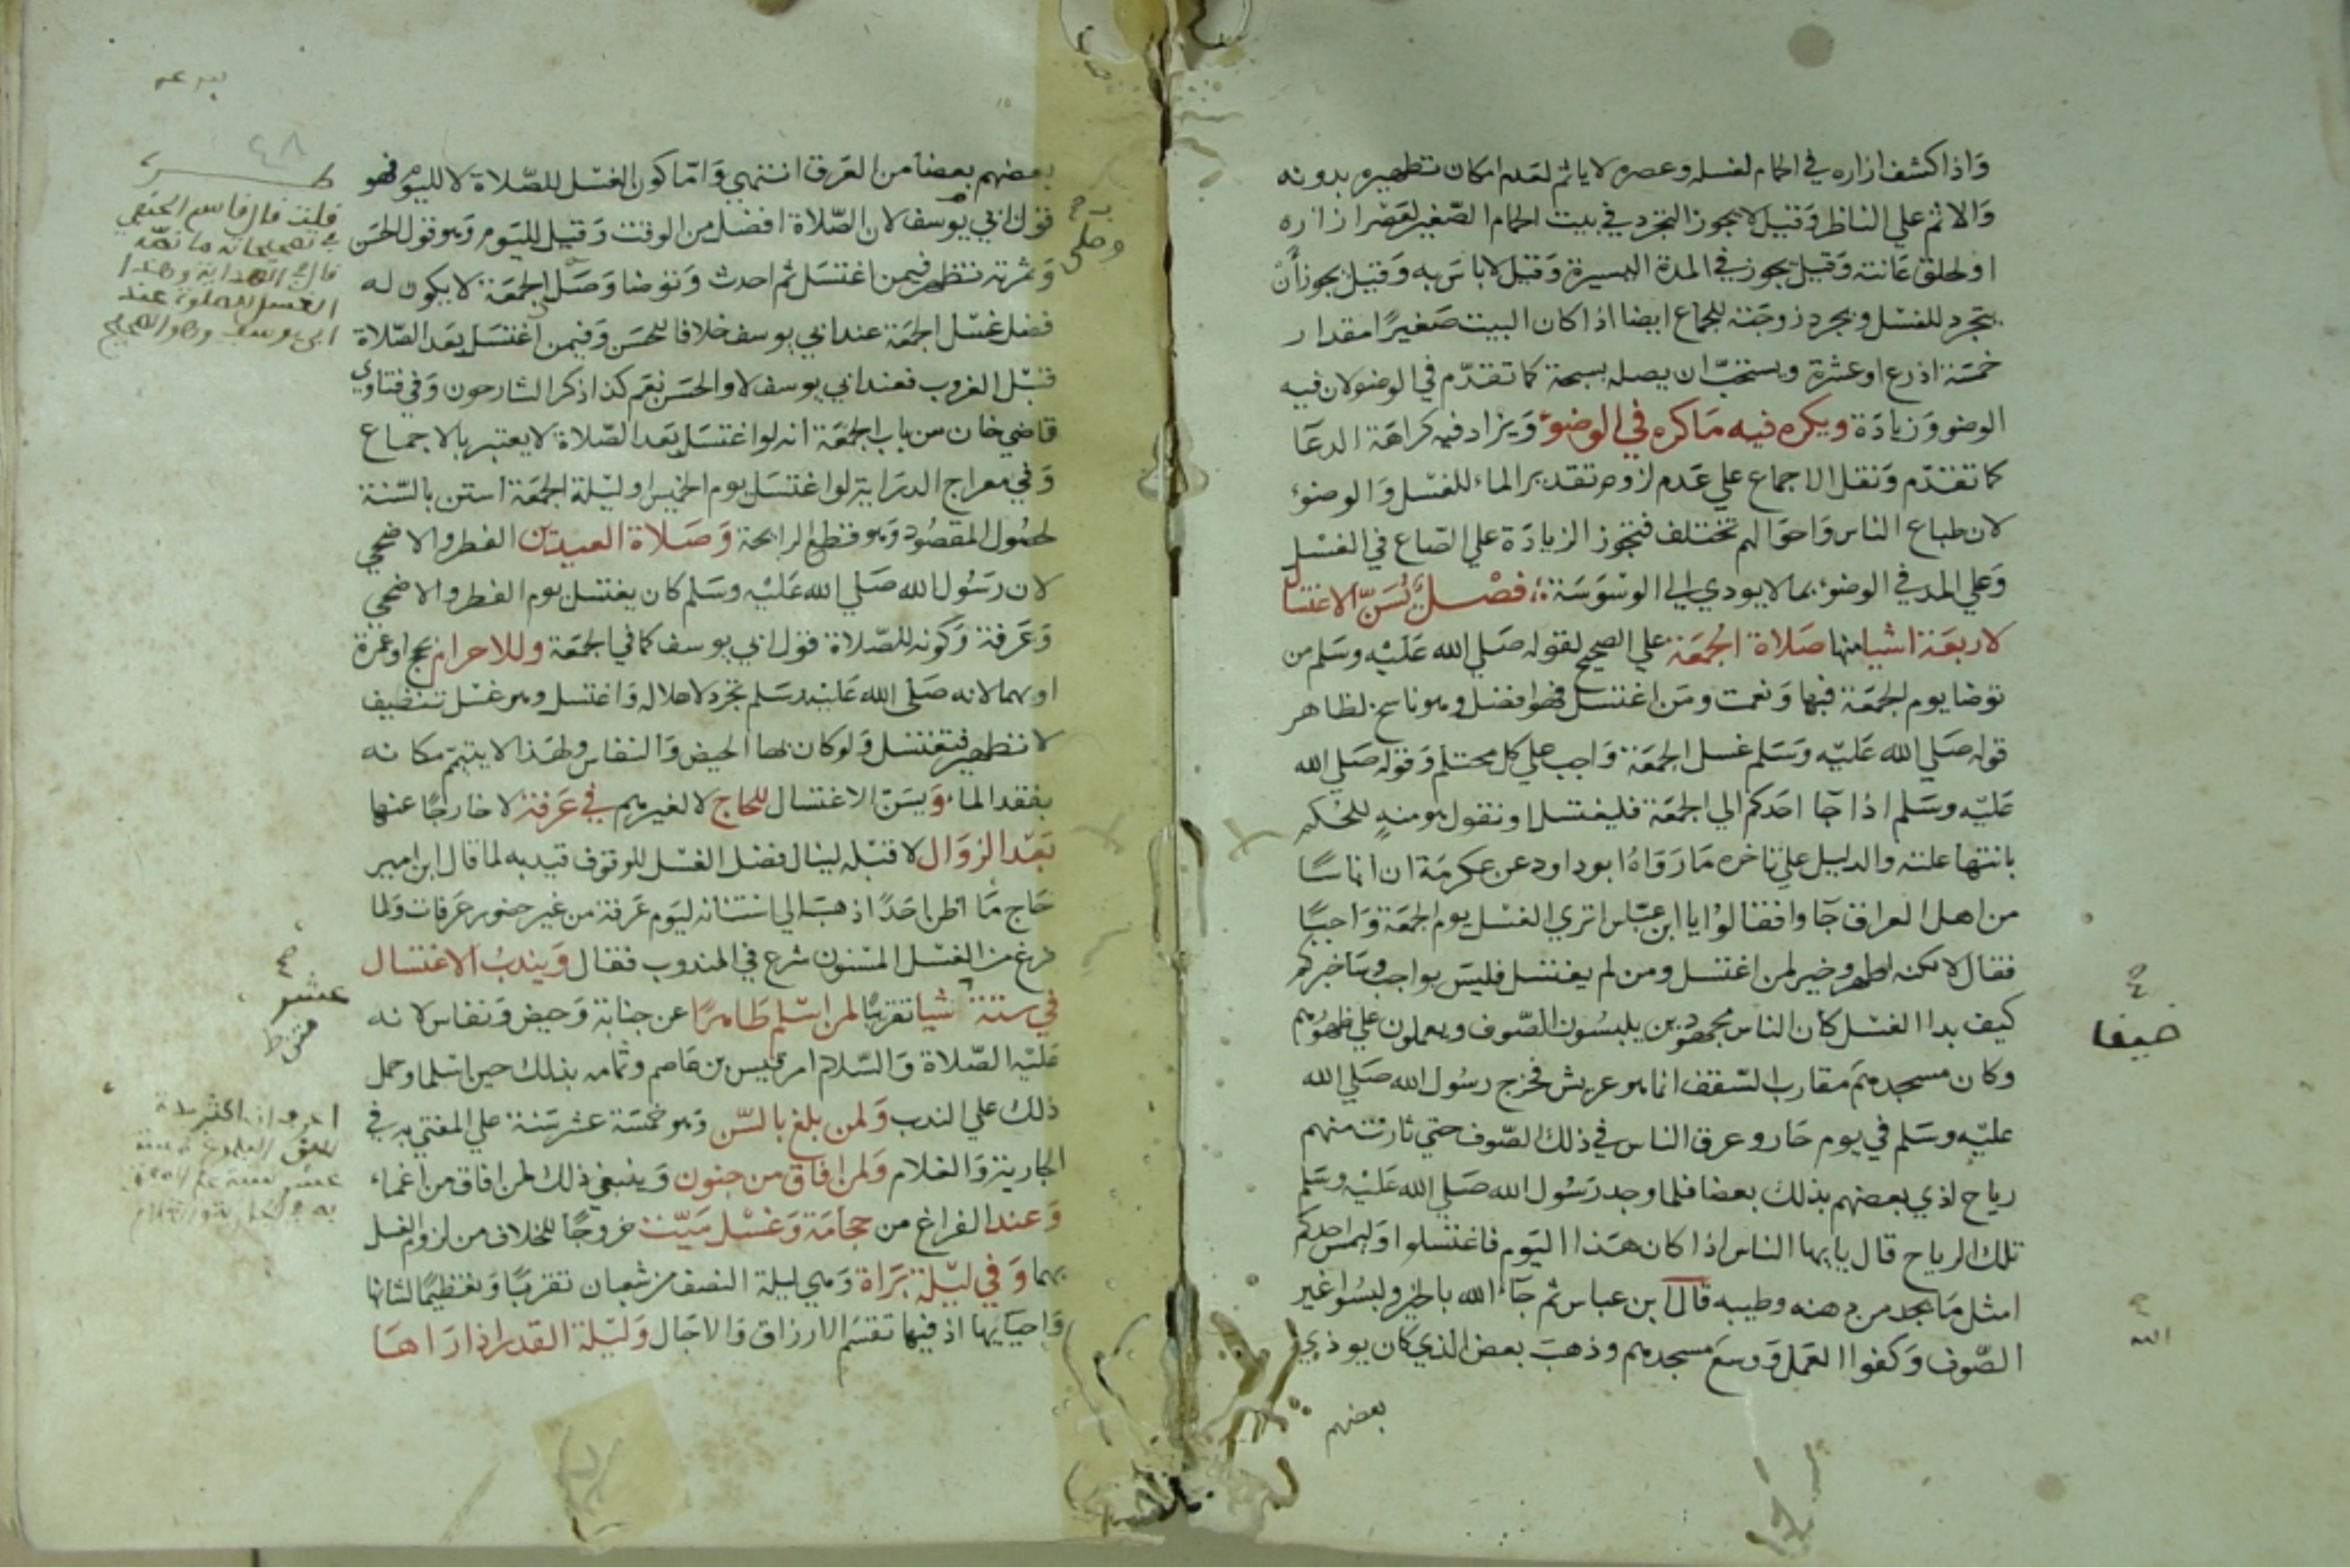 واذا كشف ازاره في الحمام لغسله وعصره لا ياثم لعدم امكان تطهيره بدونه
والاثم علي الناظر وقيل لا يجوز التجرد في بيت الحمام الصغير لعصر ازاره
او لحلق عانته وقيل يجوز في المدة اليسيرة وقيل لا باس به وقيل يجوز أن
يتجرد للغسل ويجرد زوجته للجماع ايضا اذا كان البيت صغيرًا مقدار
خمسة اذرع او عشرة ويستحبّ ان يصله بسبحة كما تقدّم في الوضو لان فيه
الوضو وزيادة ويكره فيه ما كره في الوضوء ويزاد فيه كراهة الدعا
كما تقدّم ونقل الاجماع علي عدم لزوم تقدير الماء للغسل والوضوء
لان طباع الناس واحوالهم تختلف فتجوز الزيادة علي الصاع في الغسل
وعلي المد في الوضوء بما لا يودي الي الوسوسة فصل يُسَنّ الاغتسال
لاربعة اشيا منها صلاة الجمعة علي الصحيح لقوله صلي الله عليه وسلم من
توضا يوم الجمعة فبها ونعمت ومن اغتسل فهو افضل وهو ناسخ لظاهر
قوله صلي الله عليه وسلم غسل الجمعة واجب علي كل محتلم وقوله صلي الله
عليه وسلم اذا جا احدكم الي الجمعة فليغتسل او نقول هو منه للحكم
بانتها علته والدليل علي تاخره ما رواه ابو داود عن عكرمة ان اناسًا
من اهل العراق جاوا فقالوا يا ابن عباس اتري الغسل يوم الجمعة واجبًا
فقال لا لكنه اطهر وخير لمن اغتسل ومن لم يغتسل فليس بواجب وساخبركم
كيف بدا الغسل كان الناس مجهودين يلبسون الصّوف ويعملون علي ظهورهم
وكان مسجدهم مقارب السّقف انما هو عريش فخرج رسول الله صلي الله
عليه وسلم في يوم حار وعرق الناس في ذلك الصّوف حتي ثارت منهم
رياح اذي بعضهم بذلك بعضا فلما وجد رسول الله صلي الله عليه وسلم
تلك الرياح قال يا ايها الناس اذا كان هذا اليوم فاغتسلوا وليمس احدكم
امثل ما يجد من دهنه وطيبه قال ابن عباس ثم جاء الله بالخير ولبسوا غير
الصّوف وكفوا العمل ووسع مسجدهم وذهب بعض الذي كان يوذي
بعضهم
ضيفا
الله
٤٨
بعضهم بعضا من العرق انتهي وامّا كون الغسل للصّلاة لا لليوم فهو
قول ابي يوسف لان الصّلاة افضل من الوقت وقيل لليوم وهو قول الحسن
وثمرته تظهر فيمن اغتسل ثم احدث وتوضا وصلي الجمعة لا يكون له
فضل غسل الجمعة عند ابي يوسف خلافا للحسن وفيمن اغتسل بعد الصّلاة
قبل الغروب فعند ابي يوسف لا والحسن نعم كذا ذكر الشارحون وفي فتاوي
قاضي خان من باب الجمعة انه لو اغتسل بعد الصّلاة لا يعتبر بالاجماع
وفي معراج الدراية لو اغتسل يوم الخميس او ليلة الجمعة استن بالسّنة
لحصول المقصود وهو قطع الرايحة وصلاة العيدين الفطر والاضحي
لان رسول الله صلي الله عليه وسلم كان يغتسل يوم الفطر والاضحي
وعرفة وكونه للصّلاة قول ابي يوسف كما في الجمعة وللاحرام بحج او عمرة
او بهما لانه صلي الله عليه وسلم تجرد لاهلاله واغتسل وهو غسل تنظيف
لا تطهير فتغتسل ولو كان بها الحيض والنفاس ولهذا لا يتيمّم مكانه
بفقد الماء ويسنّ الاغتسال للحاج لا لغيرهم في عرفة لا خارجًا عنها
بعد الزوال لا قبله لينال فضل الغسل للوقوف قيد به لما قال ابن امير
حاج ما اظن احدًا ذهب الي استنانه ليوم عرفة من غير حضور عرفات ولما
فرغ من الغسل المسنون شرع في المندوب فقال ويندب الاغتسال
في ستة اشيا تقريبًا لمن اسلم طاهرًا عن جنابة وحيض ونفاس لانه
عليه الصّلاة والسّلام امر قيس بن عاصم وثمامه بذلك حين اسلما وحمل
ذلك علي الندب ولمن بلغ بالسّن وهو خمسة عشر سنة علي المفتي به في
الجارية والغلام ولمن افاق من جنون وينبغي ذلك لمن افاق من اغماء
وعند الفراغ من حجامة وغسل ميّت خروجًا للخلاف من لزوم الغسل
بهما وفي ليلة براة وهي ليلة النصف من شعبان تقربًا وتعظيمًا لشانها
واحيايها اذ فيها تقسم الارزاق والاجال وليلة القدر اذا راها
وصلي
قلت قال قاسم الحنفي
في تصحيحاته ما نصّه
قال في الهداية وهذا
الغسل للصلوة عند
ابي يوسف وهو الصحيح
عشر